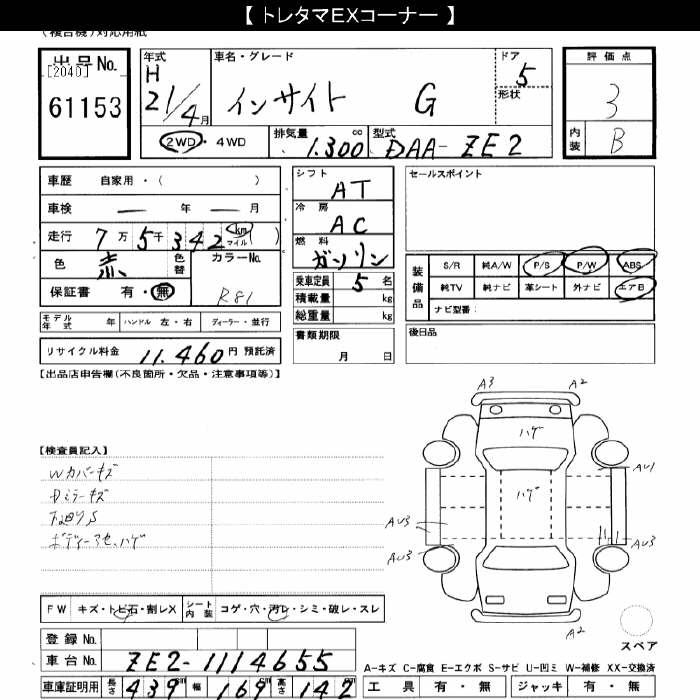 【 トレタマEXコーナー 】
(複合機)対応用紙
出品No.
[2040]
61153
年式
H
21/4月
車名・グレード
インサイト G
ドア
5
形状
評価点
3
内装
B
2WD・4WD
排気量
1.300cc
型式
DAA-ZE2
車歴 自家用・( )
車検 ― 年 ― 月
走行 7万5千342 km マイル ( )
色 赤 色替
カラーNo.
R81
保証書 有・無
シフト
AT
冷房
AC
燃料
ガソリン
乗車定員 5 名
積載量 kg
総重量 kg
書類期限
月 日
セールスポイント
装備品
S/R 純A/W P/S P/W ABS
純TV 純ナビ 革シート 外ナビ エアB
ナビ型番:
後日品
モデル年式 年 ハンドル 左・右 ディーラー・並行
リサイクル料金 11.460 円 預託済
【出品店申告欄(不良箇所・欠品・注意事項等)】
【検査員記入】
Wカバーキズ
Dミラーキズ
ボディー アセ、ハゲ
A3
A2
ハゲ
ハゲ
AU1
AU3
AU3
AU3
A2
FW キズ・トビ石・割レX
シート内装 コゲ・穴・汚レ・シミ・破レ・スレ
登録No.
車台No. ZE2-1114655
車庫証明用 長さ 439 cm 幅 169 cm 高さ 142
スペア
A-キズ C-腐食 E-エクボ S-サビ U-凹ミ W-補修 XX-交換済
工具 有・無 ジャッキ 有・無